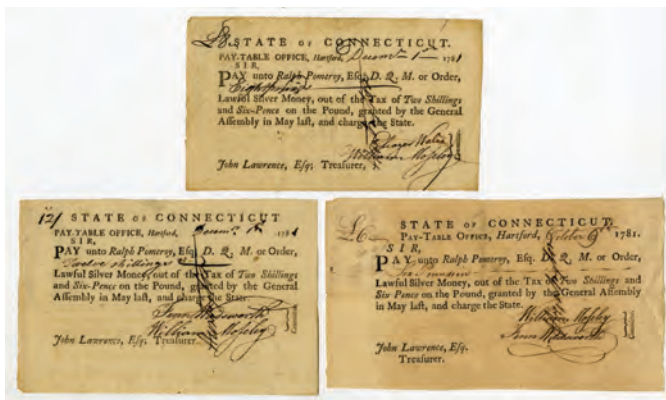 £8 STATE OF CONNECTICUT.
PAY-TABLE OFFICE, Hartford, Decemr 1st 1781
SIR,
PAY unto Ralph Pomeroy, Esq; D. Q. M. or Order,
Eight pounds
Lawful Silver Money, out of the Tax of Two Shillings
and Six-Pence on the Pound, granted by the General
Assembly in May last, and charge the State.
William Mosely
John Lawrence, Esq; Treasurer,
12/ STATE OF CONNECTICUT
PAY-TABLE OFFICE, Hartford, Decemr 1st 1781
SIR,
PAY unto Ralph Pomeroy, Esq; D. Q. M. or Order,
Twelve shillings
Lawful Silver Money, out of the Tax of Two Shillings
and Six-Pence on the Pound, granted by the General
Assembly in May last, and charge the State.
Jenn Wadsworth
William Mosely
John Lawrence, Esq; Treasurer,
£6 STATE OF CONNECTICUT,
PAY-TABLE OFFICE, Hartford, October 1781.
SIR,
PAY unto Ralph Pomeroy, Esq. D. Q. M. or Order,
Lawful Silver Money, out of the Tax of Two Shillings and
Six-Pence on the Pound, granted by the General Assembly
in May last, and charge the State.
William Mosely
Jenn Wadsworth
John Lawrence, Esq.
Treasurer.